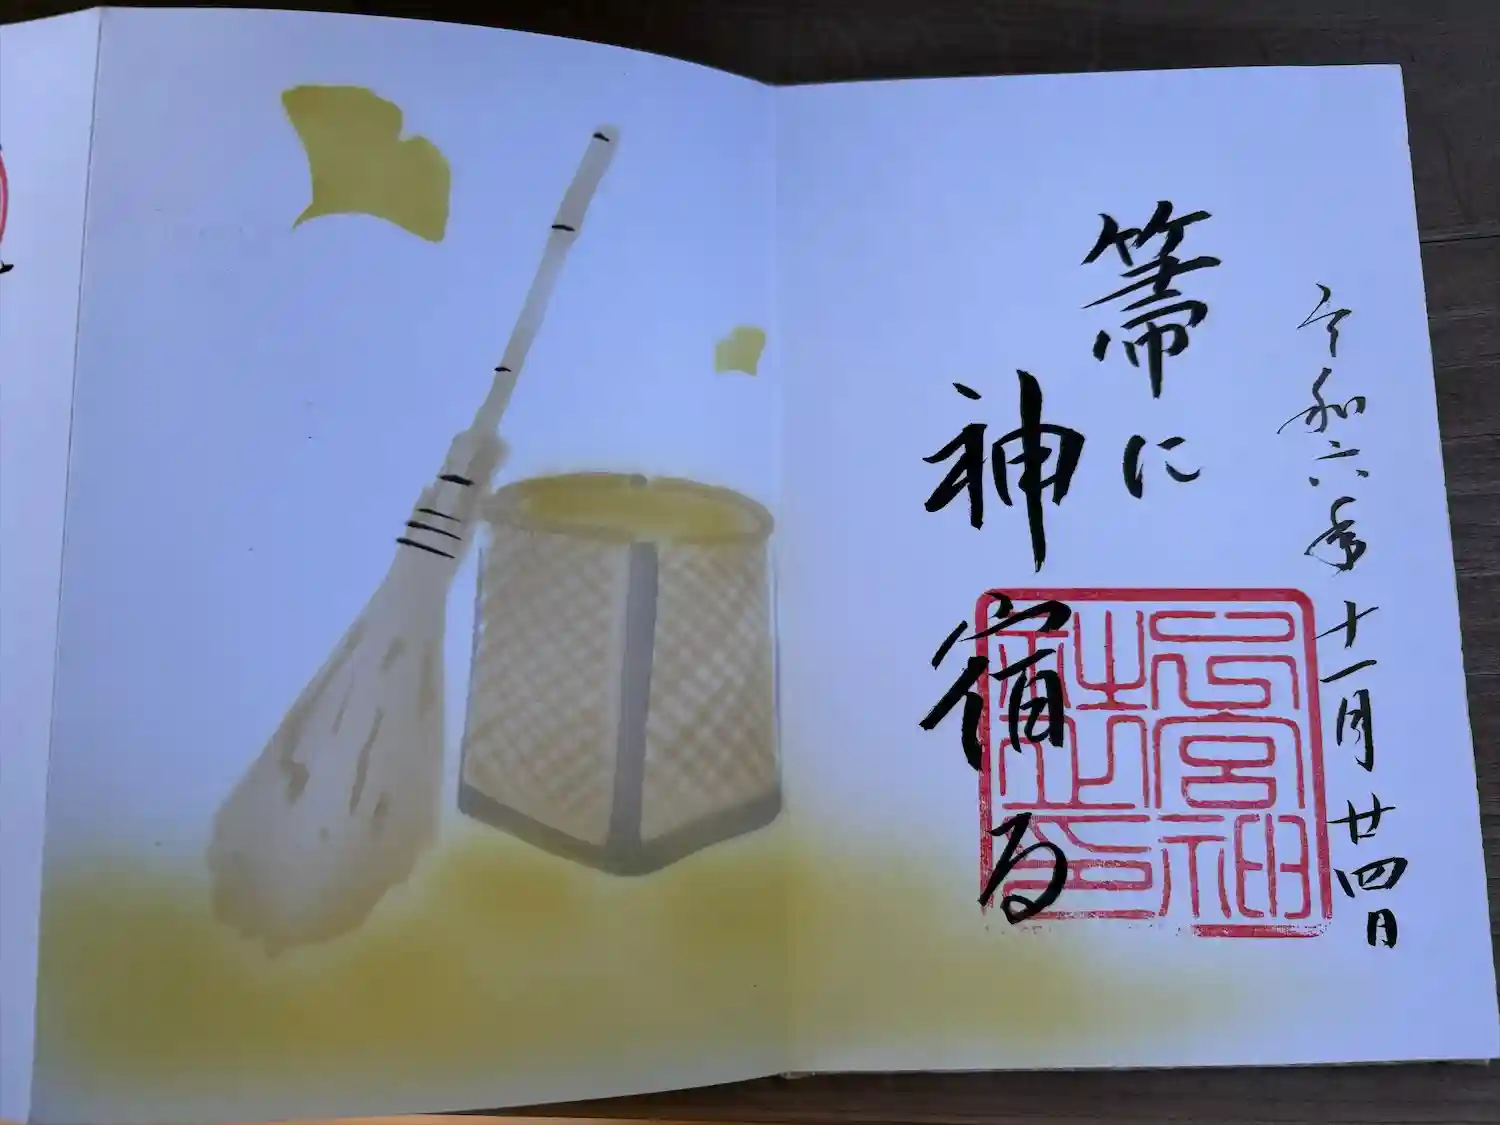 令和六年十一月廿四日
箒に
神宿る
宮神
社之印